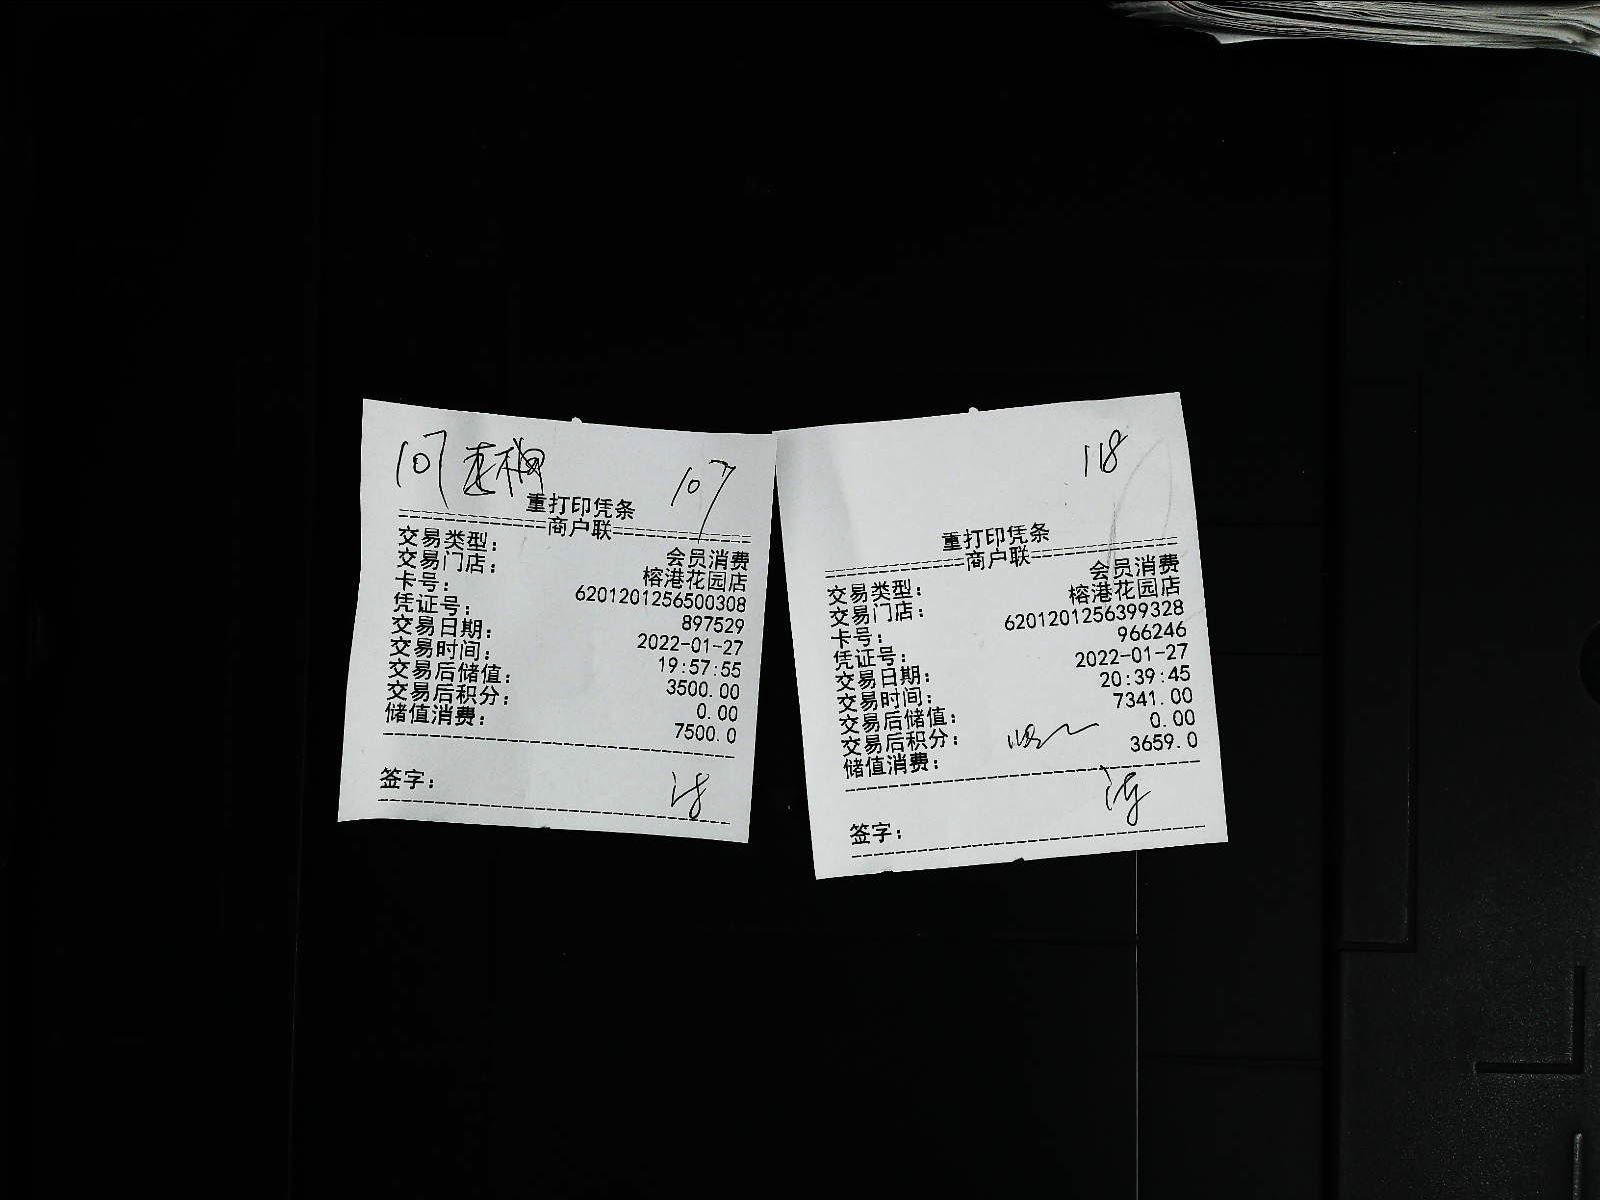 107
107
重打印凭条
==============商户联==============
交易类型： 会员消费
交易门店： 榕港花园店
卡号： 6201201256500308
凭证号： 897529
交易日期： 2022-01-27
交易时间： 19:57:55
交易后储值： 3500.00
交易后积分： 0.00
储值消费： 7500.0
签字：
118
重打印凭条
==============商户联==============
交易类型： 会员消费
交易门店： 榕港花园店
卡号： 6201201256399328
凭证号： 966246
交易日期： 2022-01-27
交易时间： 20:39:45
交易后储值： 7341.00
交易后积分： 0.00
储值消费： 3659.0
签字：